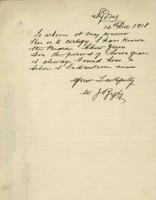 Sydney
14th Dec 1918
To whom it may concern
this is to certify I have known
the Bearer Chew Yuen
for the period of Seven years
& always found him a
sober & industrious man
Yours Faithfully
W J